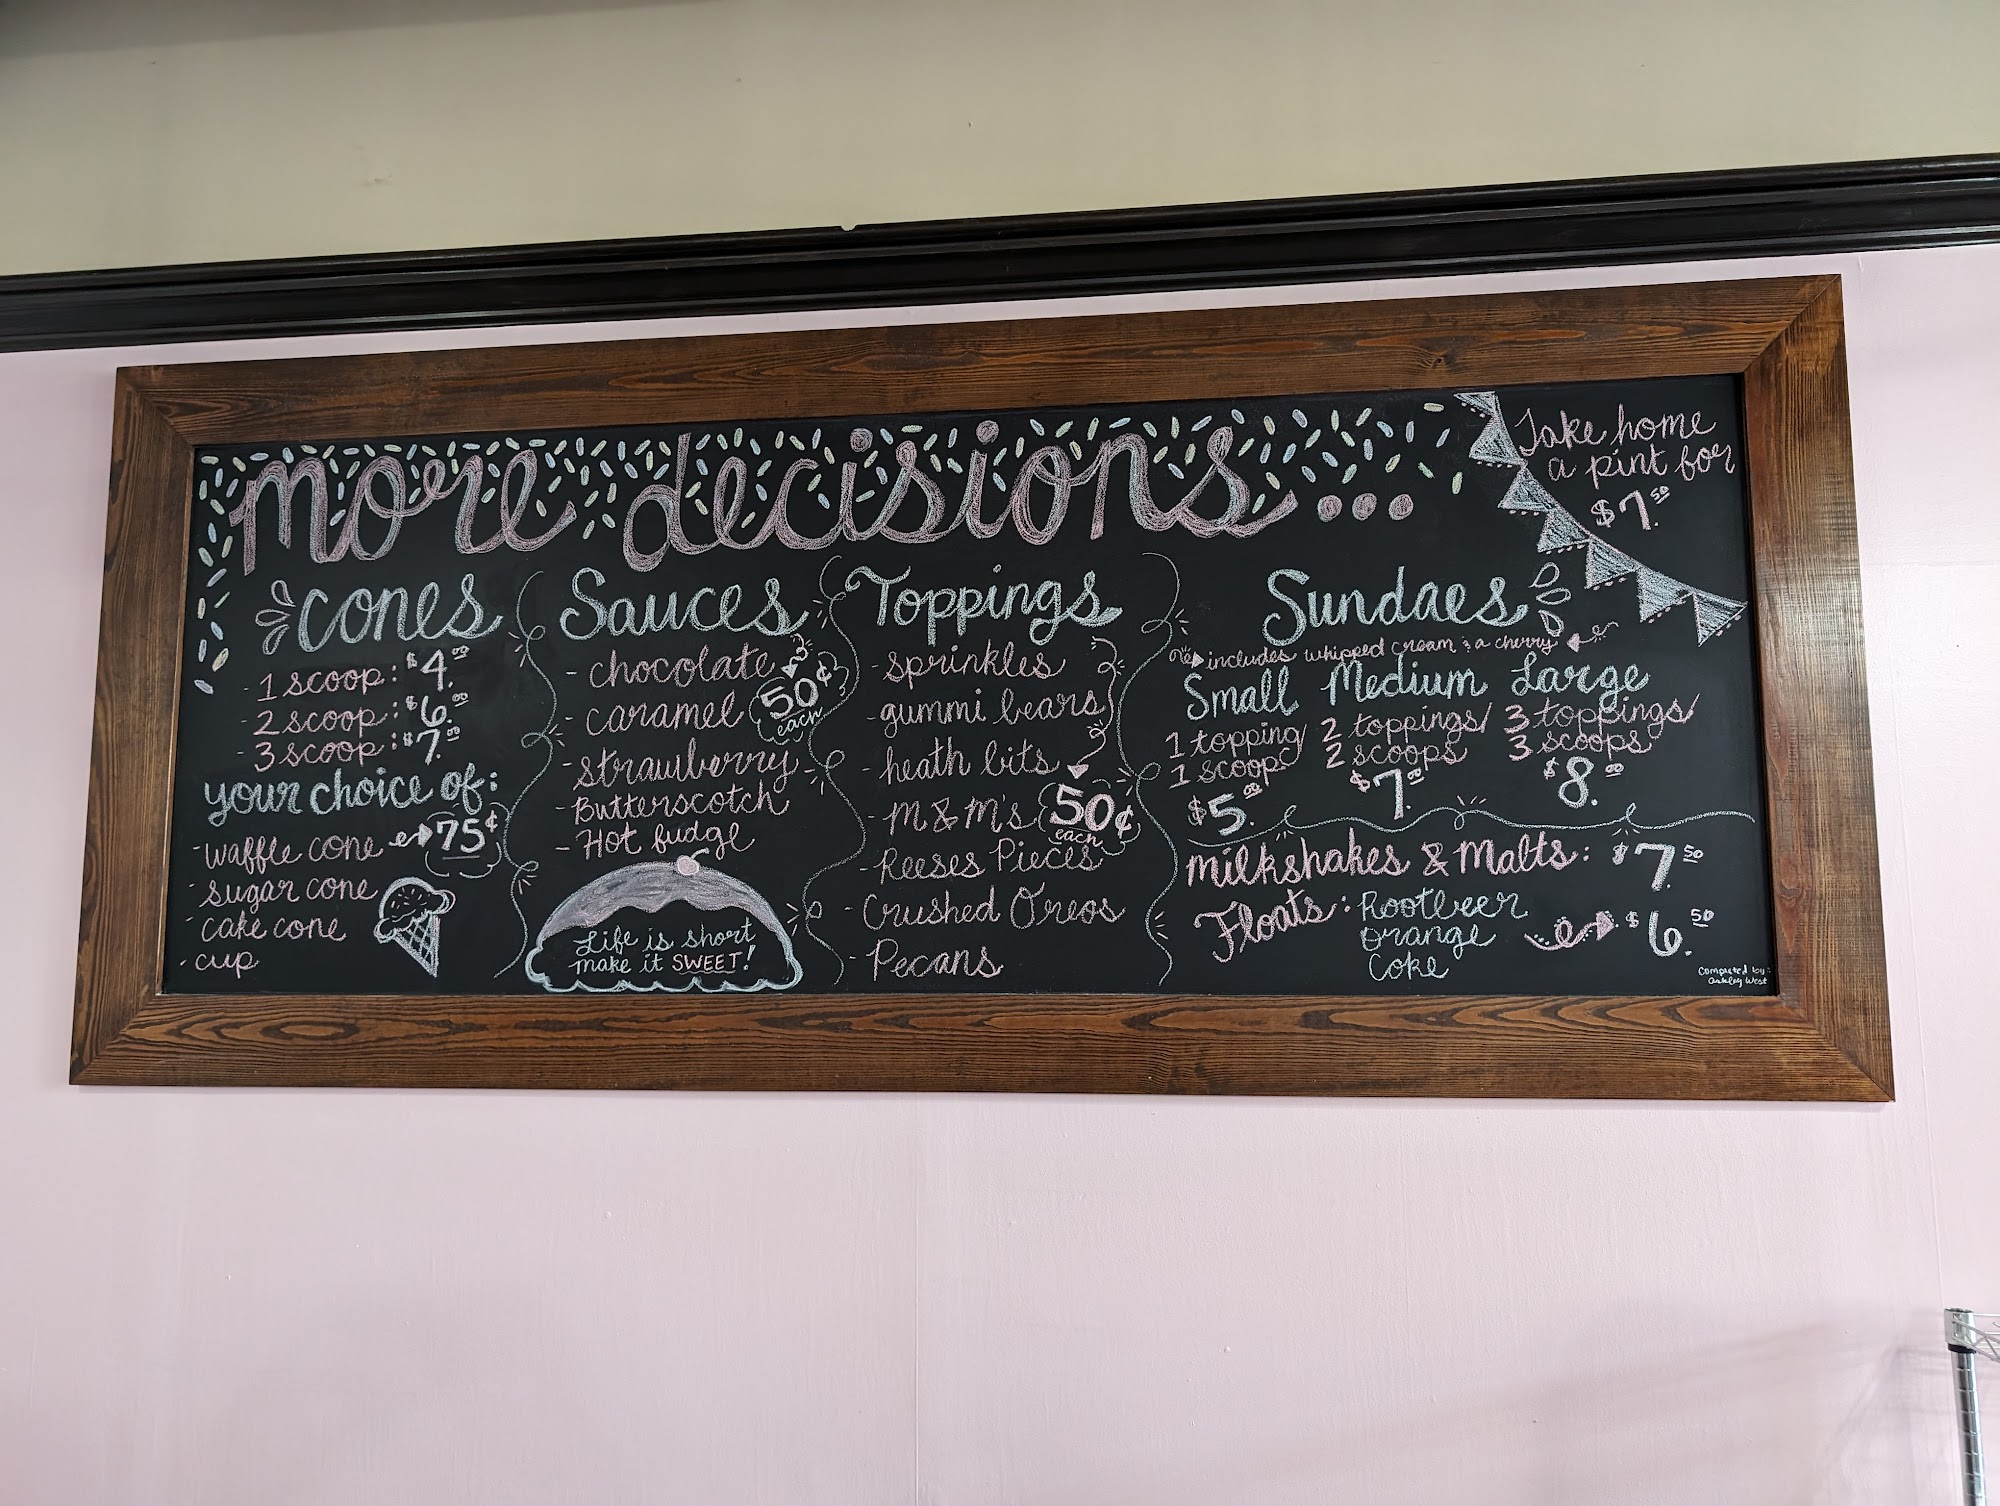 more decisions...
Take home
a pint for
$7.50
Cones
- 1 scoop: $4.00
- 2 scoop: $6.00
- 3 scoop: $7.00
your choice of:
- waffle cone 75¢
- sugar cone
- cake cone
- cup
Sauces
- chocolate
- caramel
50¢
each
- strawberry
- Butterscotch
- Hot fudge
Life is short
make it SWEET!
Toppings
- sprinkles
- gummi bears
- heath bits
- M&M's
50¢
each
- Reeses Pieces
- Crushed Oreos
- Pecans
Sundaes
includes whipped cream & a cherry
Small Medium Large
1 topping 2 toppings 3 toppings
1 scoop 2 scoops 3 scoops
$5.00 $7.00 $8.00
Milkshakes & Malts: $7.50
Floats: Rootbeer
orange
Coke
$6.50
Ashley West